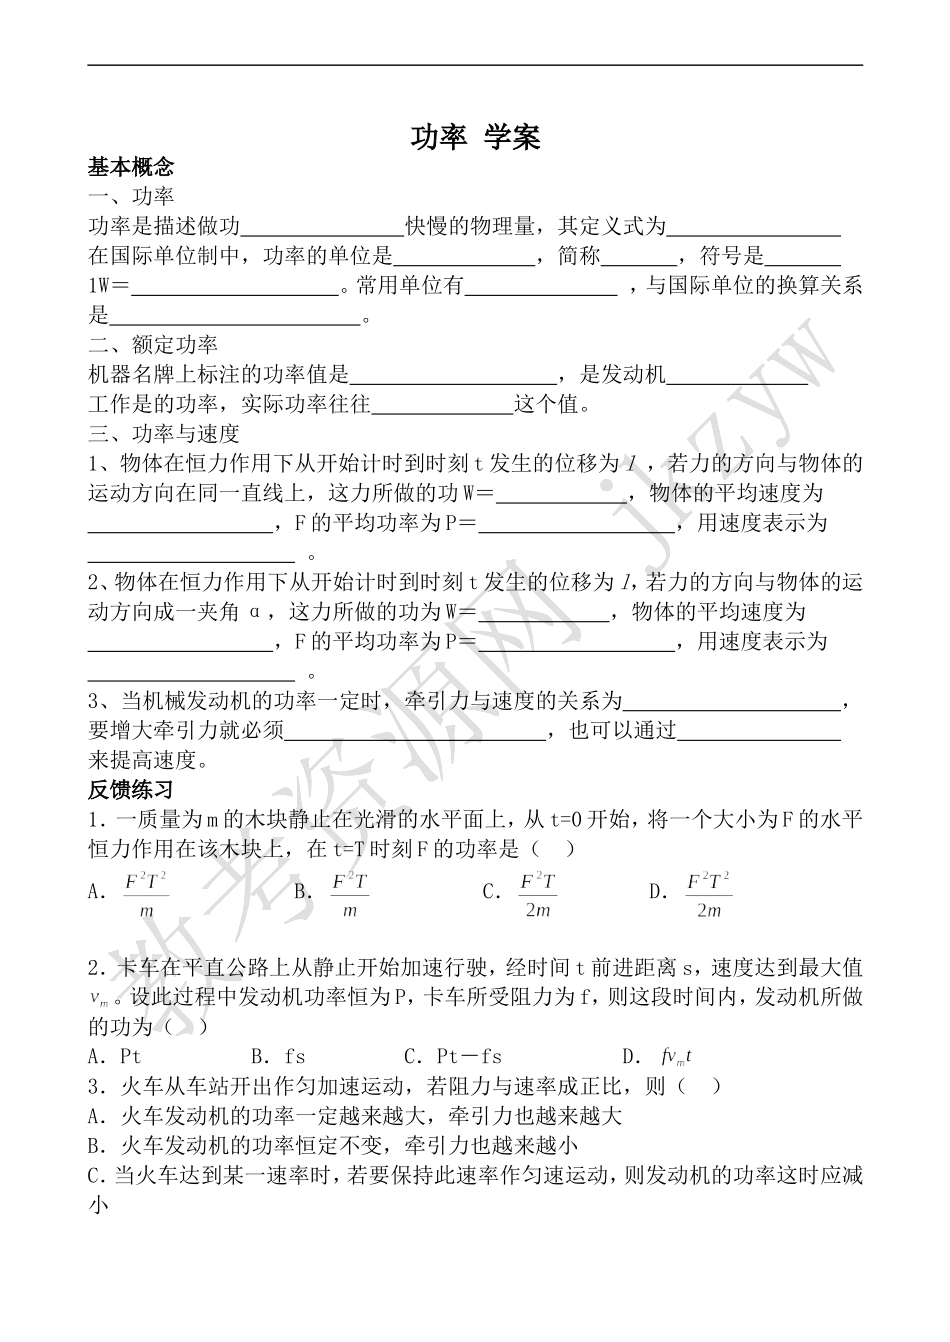 功率 学案
基本概念
一、功率
功率是描述做功______快慢的物理量，其定义式为______
在国际单位制中，功率的单位是______，简称______，符号是______
1W＝______。常用单位有______，与国际单位的换算关系
是______。
二、额定功率
机器名牌上标注的功率值是______，是发动机______
工作是的功率，实际功率往往______这个值。
三、功率与速度
1、物体在恒力作用下从开始计时到时刻 t 发生的位移为 l ，若力的方向与物体的
运动方向在同一直线上，这力所做的功 W＝______，物体的平均速度为
______，F 的平均功率为 P＝______，用速度表示为
______。
2、物体在恒力作用下从开始计时到时刻 t 发生的位移为 l，若力的方向与物体的运
动方向成一夹角 α，这力所做的功为 W＝______，物体的平均速度为
______，F 的平均功率为 P＝______，用速度表示为
______。
3、当机械发动机的功率一定时，牵引力与速度的关系为______，
要增大牵引力就必须______，也可以通过______
来提高速度。
反馈练习
1．一质量为 m 的木块静止在光滑的水平面上，从 t=0 开始，将一个大小为 F 的水平
恒力作用在该木块上，在 t=T 时刻 F 的功率是（ ）
A． F²T²/m B． F²T/m C． F²T/2m D． F²T²/2m
2．卡车在平直公路上从静止开始加速行驶，经时间 t 前进距离 s，速度达到最大值
vₘ。设此过程中发动机功率恒为 P，卡车所受阻力为 f，则这段时间内，发动机所做
的功为（ ）
A．Pt B．fs C．Pt－fs D． fvₘt
3．火车从车站开出作匀加速运动，若阻力与速率成正比，则（ ）
A．火车发动机的功率一定越来越大，牵引力也越来越大
B．火车发动机的功率恒定不变，牵引力也越来越小
C．当火车达到某一速率时，若要保持此速率作匀速运动，则发动机的功率这时应减
小
教考资源网 jkzyw